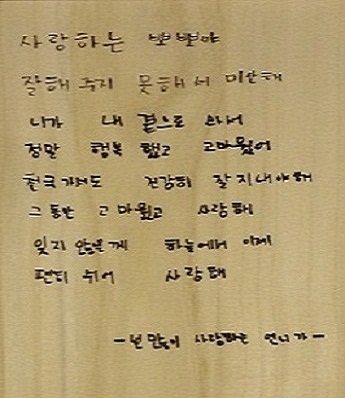 사랑하는 뽀뽀야
잘해 주지 못해서 미안해
니가 내 곁으로 와서
정말 행복 했고 고마웠어
천국 가서도 건강히 잘 지내야 해
그 동안 고마웠고 사랑해
잊지 않을께 하늘에서 이제
편히 쉬어 사랑해
- 널 많이 사랑하는 언니가 -